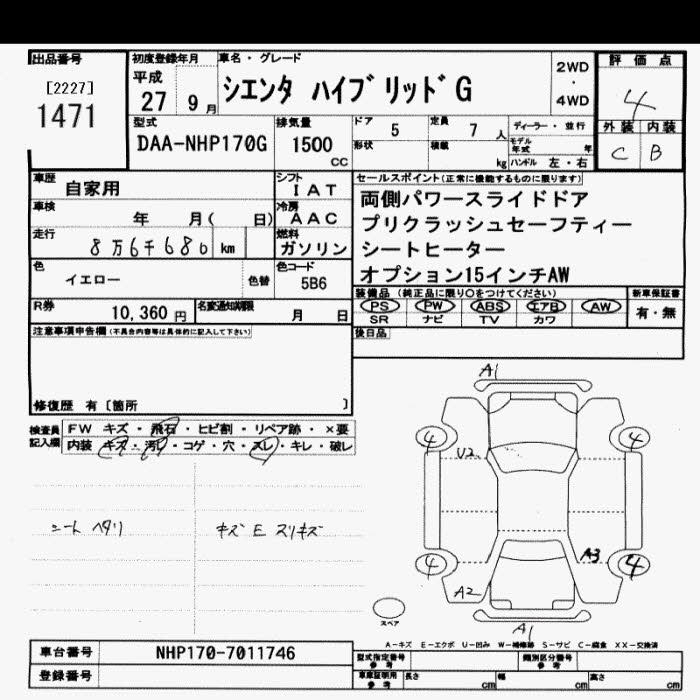 出品番号
[2227]
1471
初度登録年月
平成
27 9月
車名・グレード
シエンタ ハイブリッドG
2WD
・
4WD
評価点
4
外装 内装
C B
型式
DAA-NHP170G
排気量
1500
CC
ドア 5
定員 7 人
ディーラー・並行
形状
積載 kg
モデル年式 年
ハンドル 左・右
車歴 自家用
シフト IAT
車検 年 月( 日)
冷房 AAC
走行 8万6千680 km
燃料 ガソリン
色 イエロー
色替
色コード 5B6
R券 10,360円
名変通知期限 月 日
セールスポイント(正常に機能するものに限ります)
両側パワースライドドア
プリクラッシュセーフティー
シートヒーター
オプション15インチAW
装備品(純正品に限り○をつけてください)
新車保証書
PS PW ABS エアB AW
有・無
SR ナビ TV カワ
後日品
注意事項申告欄(不具合内容等は具体的に記入して下さい)
修復歴 有〔箇所 〕
検査員記入欄
FW キズ・飛石・ヒビ割・リペア跡・×要
内装 キズ・汚レ・コゲ・穴・スレ・キレ・破レ
シート ヘタリ
キズ E スリキズ
A1
4 4
U2
A3
4 4
A2
スペア
A1
A-キズ E-エクボ U-凹み W-補修跡 S-サビ C-腐食 XX-交換済
車台番号 NHP170-7011746
登録番号
型式指定番号 参考
類別区分番号 参考
車庫証明用 参考
長さ cm
幅 cm
高さ cm